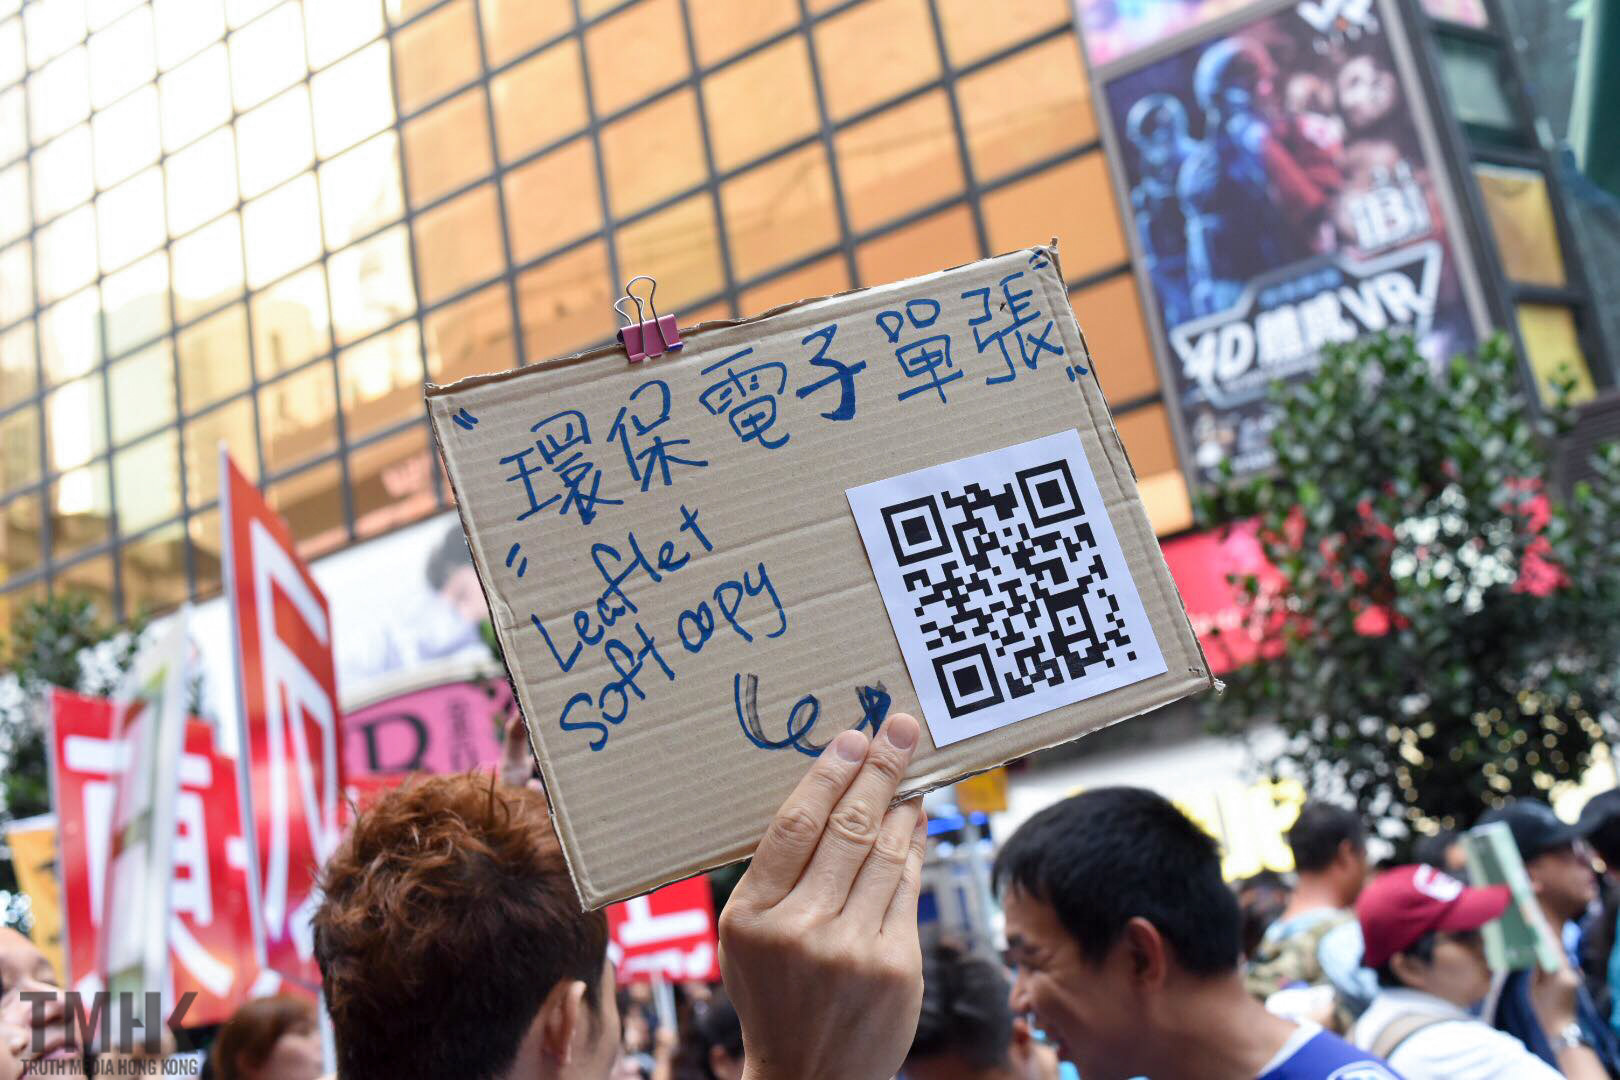 "環保電子單張"
"Leaflet
Soft copy
iBi
4D體感VR
R
TMHK
TRUTH MEDIA HONG KONG